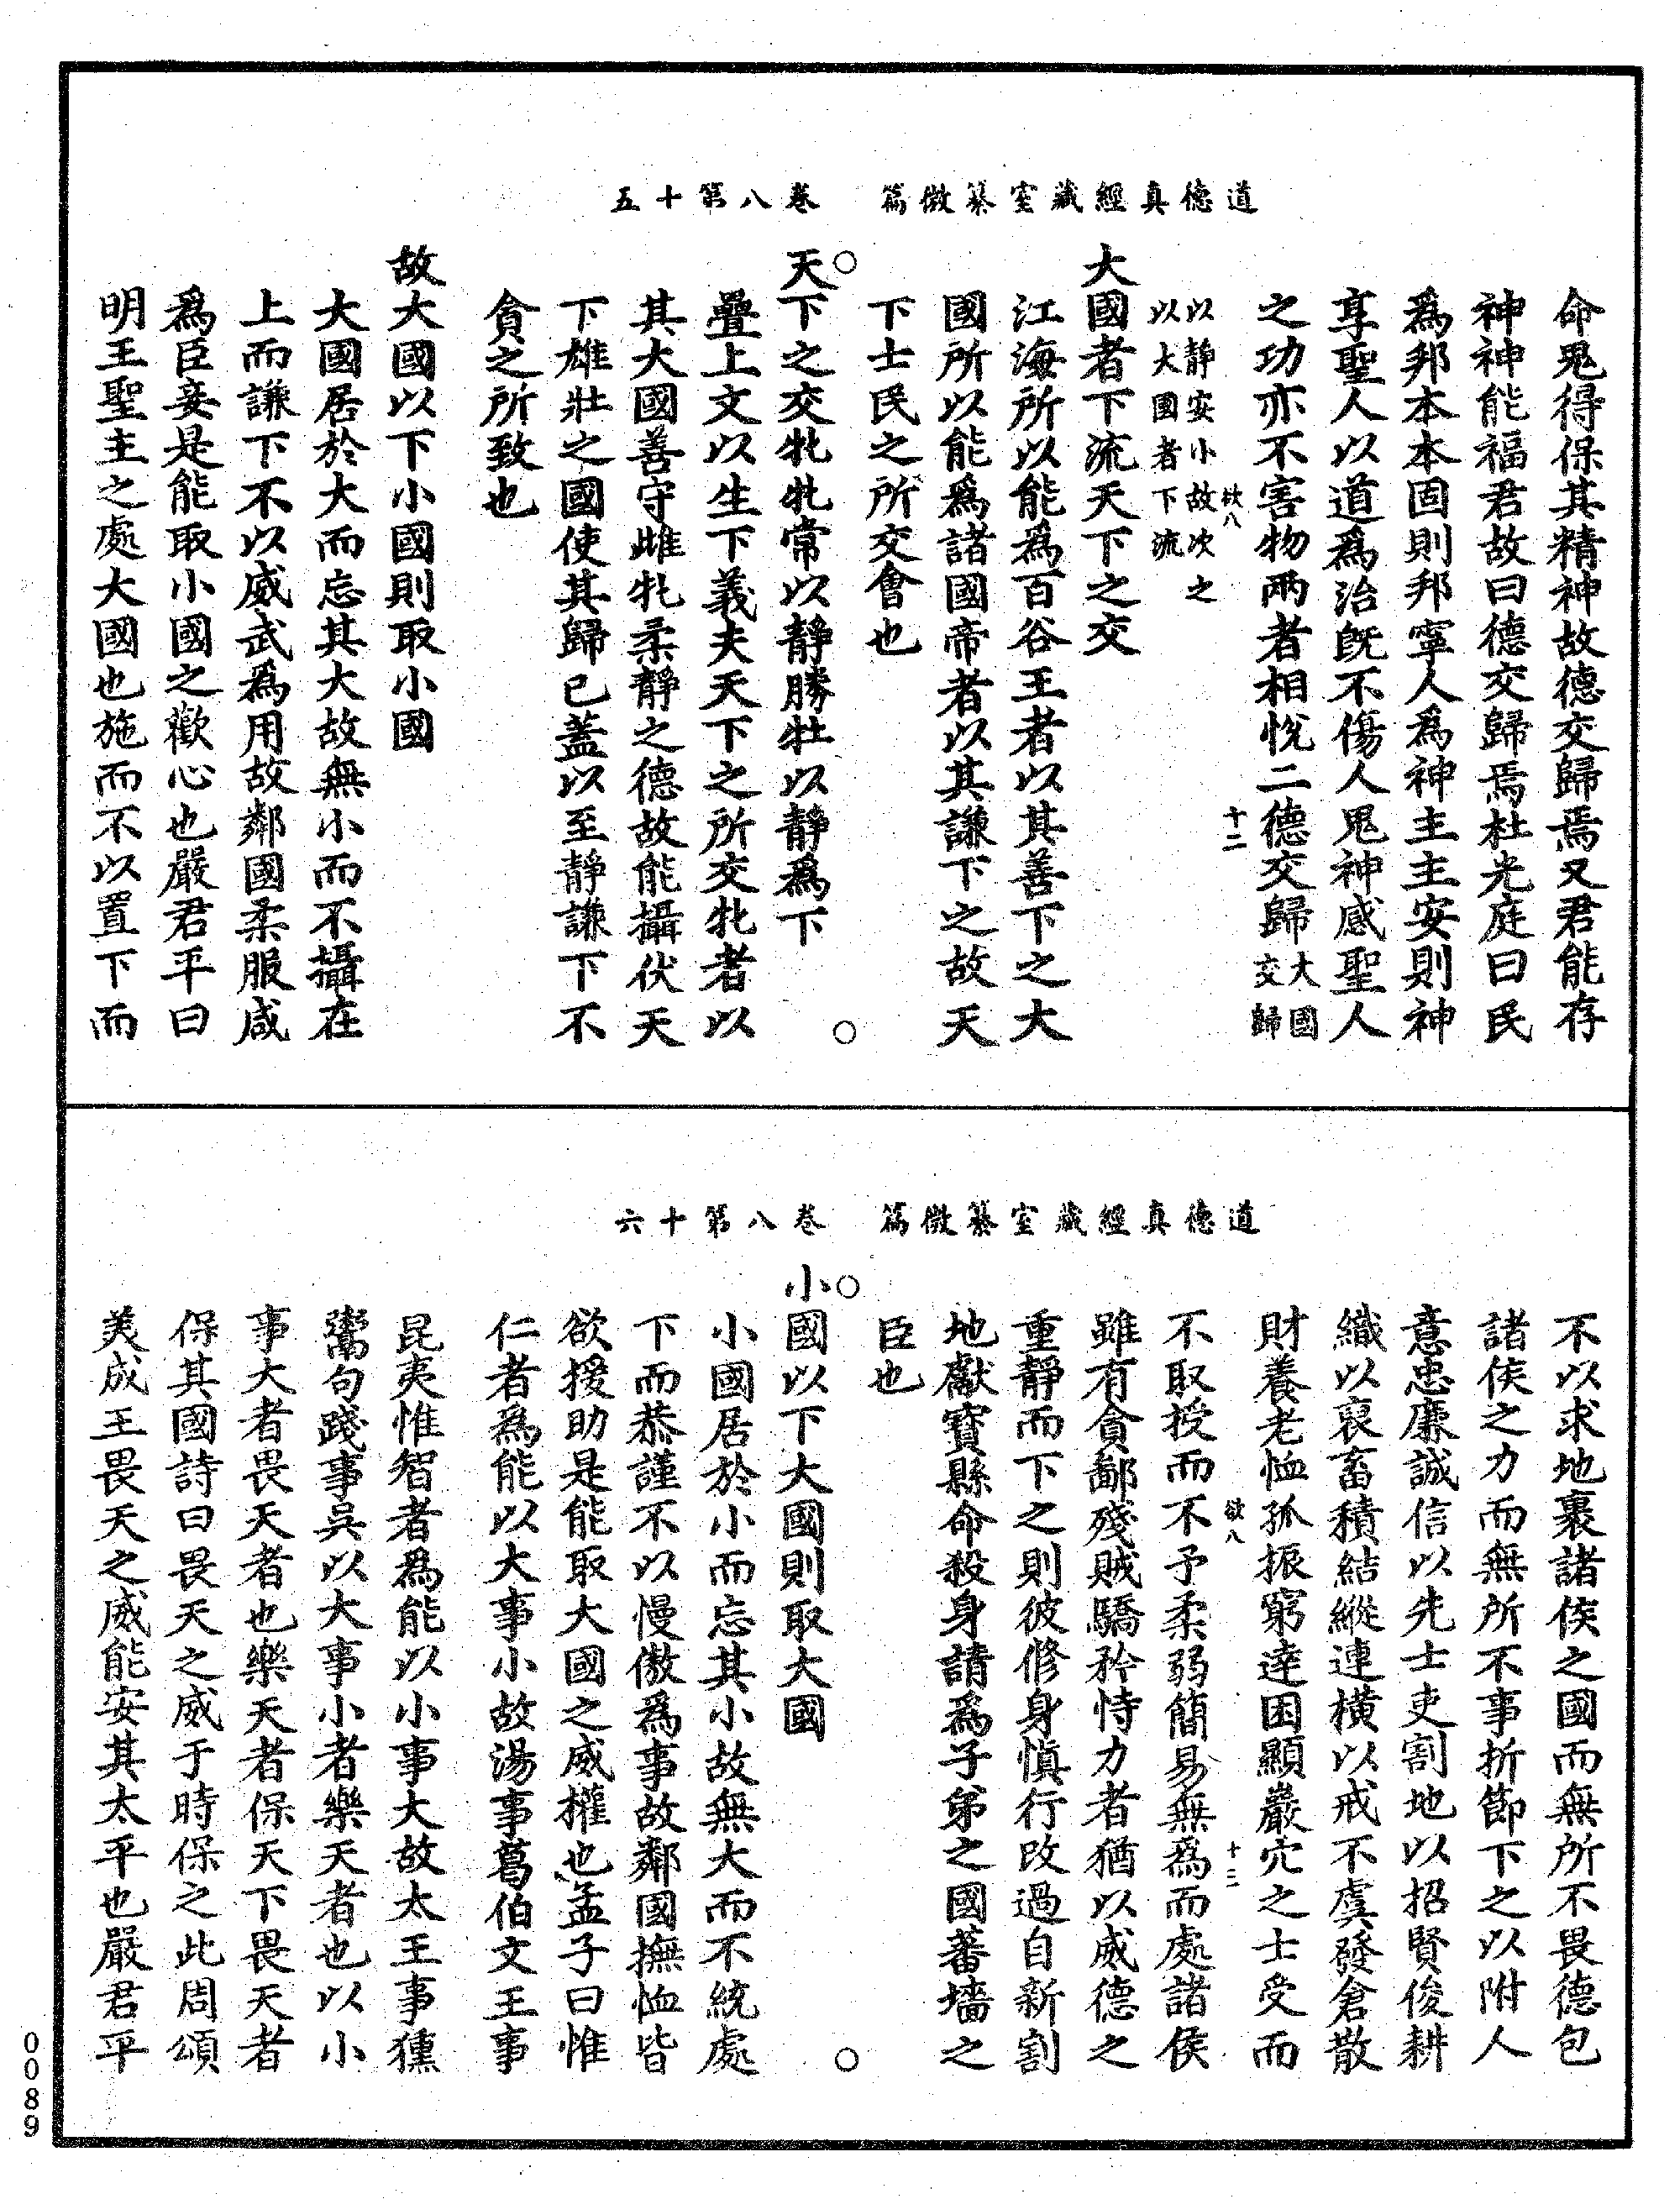 道德真經藏室纂微篇　卷八第十五
命鬼得保其精神故德交歸焉又君能存
神神能福君故曰德交歸焉杜光庭曰民
爲邦本本固則邦寧人爲神主主安則神
享聖人以道爲治旣不傷人鬼神感聖人
之功亦不害物兩者相悅二德交歸大國交歸
欲八　十二
以靜安小故次之
以大國者下流
大國者下流天下之交
江海所以能爲百谷王者以其善下之大
國所以能爲諸國帝者以其謙下之故天
下士民之所交會也
○　○
天下之交牝牝常以靜勝牡以靜爲下
疊上文以生下義夫天下之所交牝者以
其大國善守雌牝柔靜之德故能攝伏天
下雄壯之國使其歸已蓋以至靜謙下不
貪之所致也
故大國以下小國則取小國
大國居於大而忘其大故無小而不攝在
上而謙下不以威武爲用故鄰國柔服咸
爲臣妾是能取小國之歡心也嚴君平曰
明王聖主之處大國也施而不以置下而
道德真經藏室纂微篇　卷八第十六
不以求地裹諸侯之國而無所不畏德包
諸侯之力而無所不事折節下之以附人
意忠廉誠信以先士吏割地以招賢俊耕
織以裒畜積結縱連橫以戒不虞發倉散
財養老恤孤振窮達困顯巖穴之士受而
欲八　十三
不取授而不予柔弱簡易無爲而處諸侯
雖有貪鄙殘賊驕矜恃力者猶以威德之
重靜而下之則彼修身慎行改過自新割
地獻寶縣命殺身請爲子弟之國蕃墻之
臣也
○　○
小國以下大國則取大國
小國居於小而忘其小故無大而不統處
下而恭謹不以慢傲爲事故鄰國撫恤皆
欲援助是能取大國之威權也孟子曰惟
仁者爲能以大事小故湯事葛伯文王事
昆夷惟智者爲能以小事大故太王事獯
鬻句踐事吳以大事小者樂天者也以小
事大者畏天者也樂天者保天下畏天者
保其國詩曰畏天之威于時保之此周頌
美成王畏天之威能安其太平也嚴君平
0089